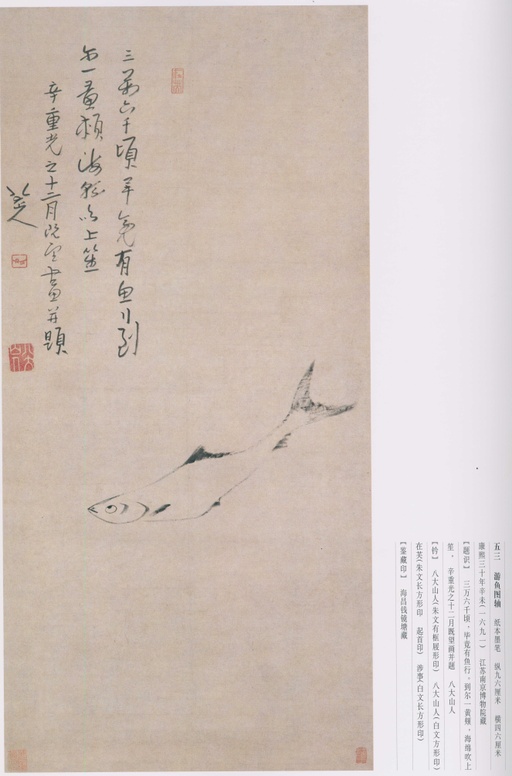 三万六千頃畢竟有魚行到
尔一黃頰海綿吹上笙
辛重光之十二月既望畫并題
八大山人
五三　游鱼图轴　纸本墨笔　纵九六厘米　横四六厘米
康熙三十年辛未(一六九一)　江苏南京博物院藏
[题识]　三万六千顷，毕竟有鱼行。到尔一黄颊，海绵吹上
笙。　辛重光之十二月既望画并题　八大山人
[钤]　八大山人(朱文有框屐形印)　八大山人(白文方形印)
在芙(朱文长方形印　起首印)　涉事(白文长方形印)
[鉴藏印]　海昌钱镜塘藏